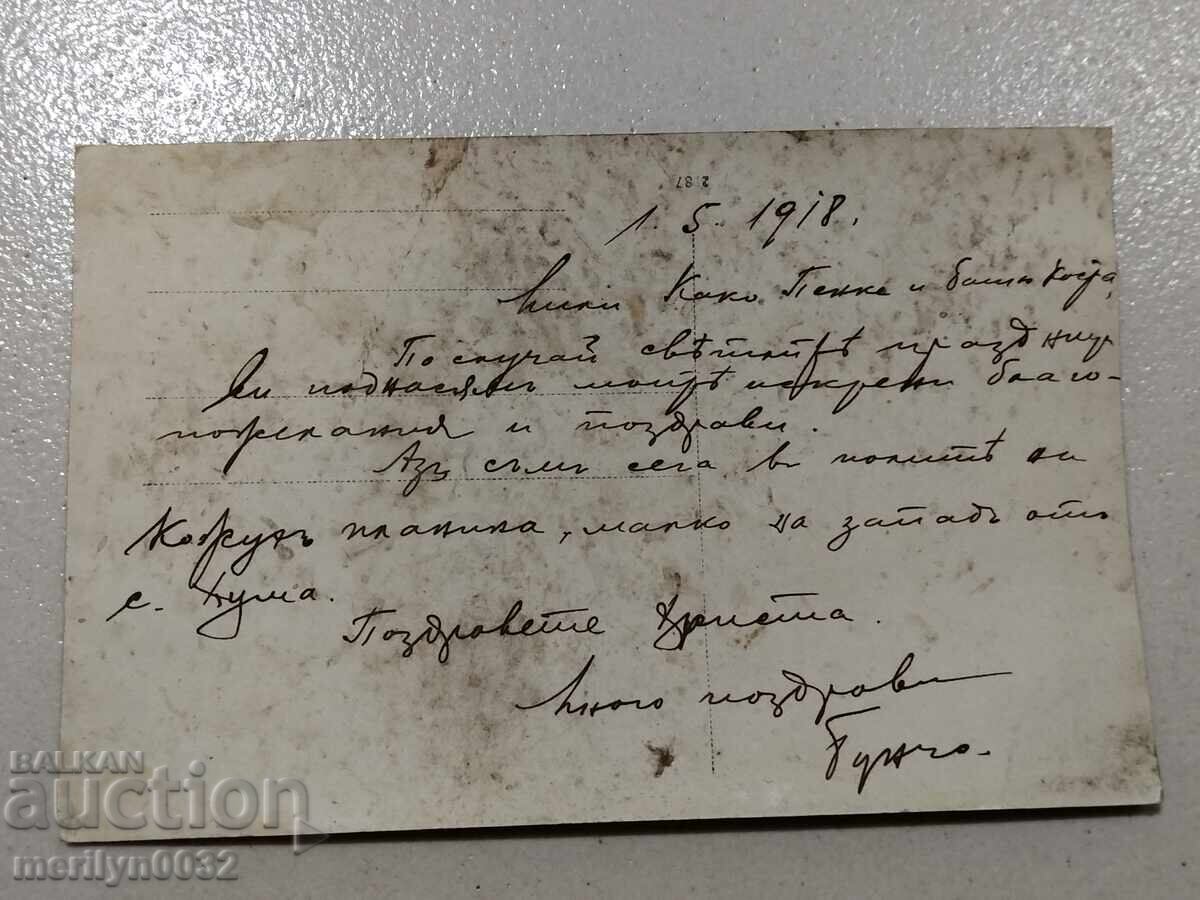 2187
1. 5. 1918.
Мили Како Пенке и батю Коста,
По случай свѣтлитѣ праздници
Ви поднасямъ моитѣ искрени благо-
пожелания и поздрави.
Азъ съмъ сега в политѣ на
Кожухъ планина, малко на западъ отъ
с. Хума.
Поздравете Христа.
Много поздрави
Бунчо.
BALKAN
auction
merilyn0032